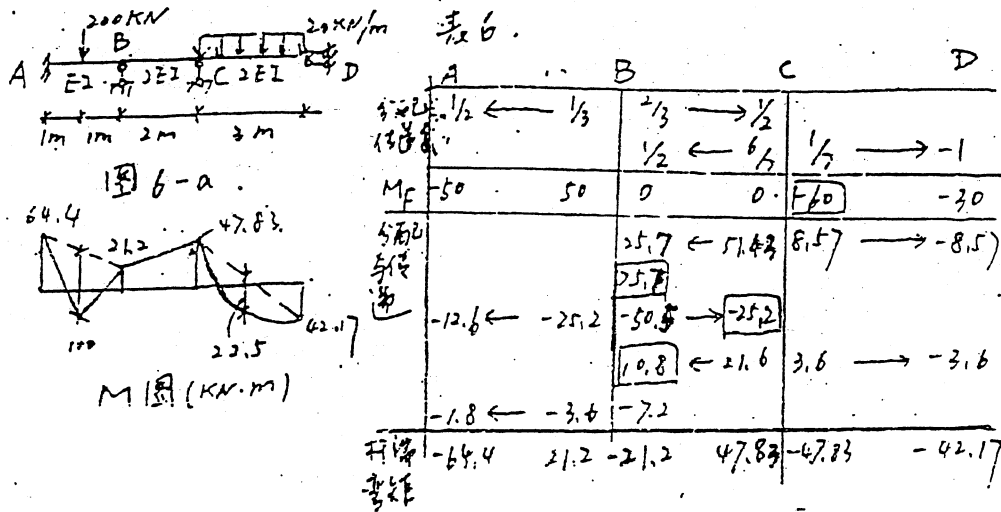 200KN
20KN/m
表6.
A
B
C
D
EI
2EI
2EI
1m 1m 2m 3m
图6-a.
64.4
21.2
47.83
100
22.5
42.17
M图(KN·m)
A B C D
分配 1/2 ← 1/3 2/3 → 1/2
传递系 1/2 ← 6/7 1/7 → -1
MF -50 50 0 0 -60 -30
分配与传递 25.7 ← 51.43 8.57 → -8.57
75.7
-12.6 ← -25.2 -50.5 → -25.2
10.8 ← 21.6 3.6 → -3.6
-1.8 ← -3.6 -7.2
杆端弯矩 -64.4 21.2 -21.2 47.83 -47.83 -42.17